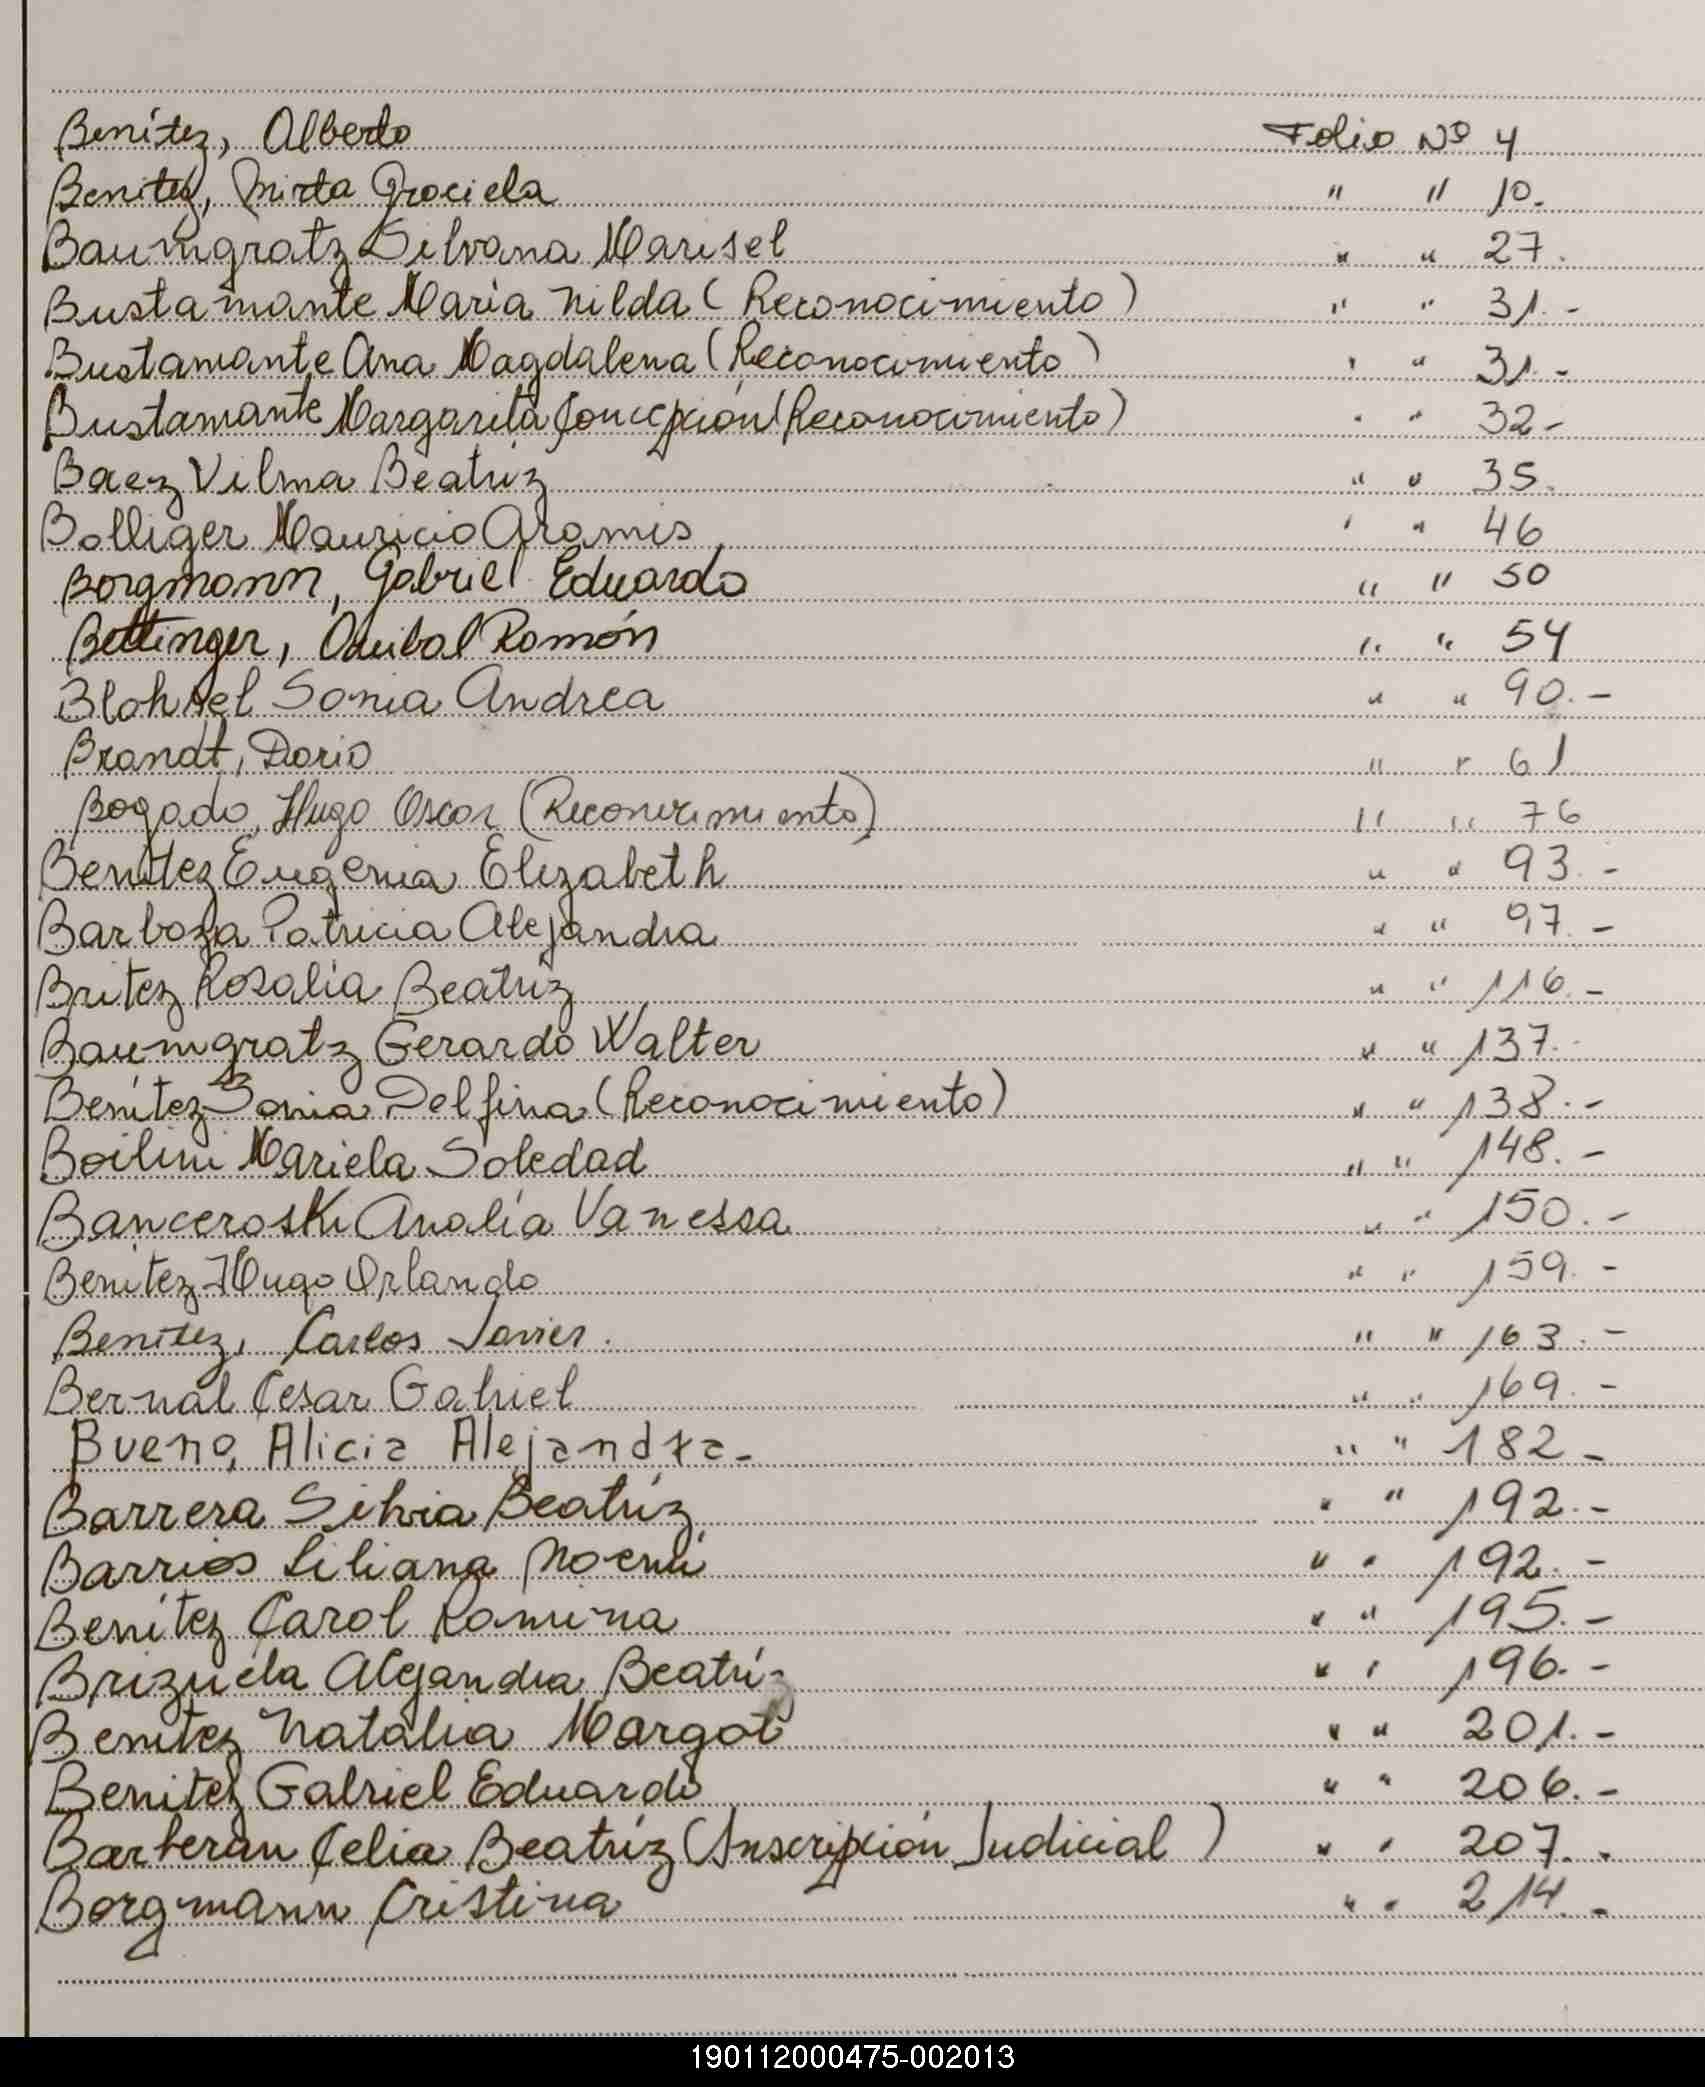 Benítez, Alberto Folio Nº 4
Benitez, Mirta Graciela " " 10.
Baumgratz Silvana Marisel " " 27.
Bustamante Maria Nilda (Reconocimiento) " " 31.-
Bustamante Ana Magdalena (Reconocimiento) " " 31.-
Bustamante Margarita Concepción (Reconocimiento) " " 32-
Baez Vilma Beatriz " " 35.
Bolliger Mauricio Aramis " " 46
Borgmann, Gabriel Eduardo " " 50
Bettinger, Anibal Ramón " " 54
Sonia Andrea " " 90.-
Brandt, Dario " " 61
Bogado, Hugo Oscar (Reconocimiento) " " 76
Benitez Eugenia Elizabeth " " 93.-
Barboza Patricia Alejandra " " 97.-
Britez Rosalía Beatriz " " 116.-
Baumgratz Gerardo Walter " " 137.-
Benítez Sonia Delfina (Reconocimiento) " " 138.-
Boilini Mariela Soledad " " 148.-
Banceroski Analía Vanessa " " 150.-
Benitez Hugo Orlando " " 159.-
Benítez, Carlos Javier. " " 163.-
Bernal Cesar Gabriel " " 169.-
Bueno, Alicia Alejandra- " " 182-
Barrera Silvia Beatríz " " 192.-
Barrios Liliana Noemí " " 192.-
Benítez Carol Romina " " 195.-
Brizuela Alejandra Beatríz " " 196.-
Benitez Natalia Margot " " 201.-
Benitez Gabriel Eduardo " " 206.-
Barberan Celia Beatríz (Inscripción Judicial) " " 207.-
Borgmann Cristina " " 214.-
190112000475-002013